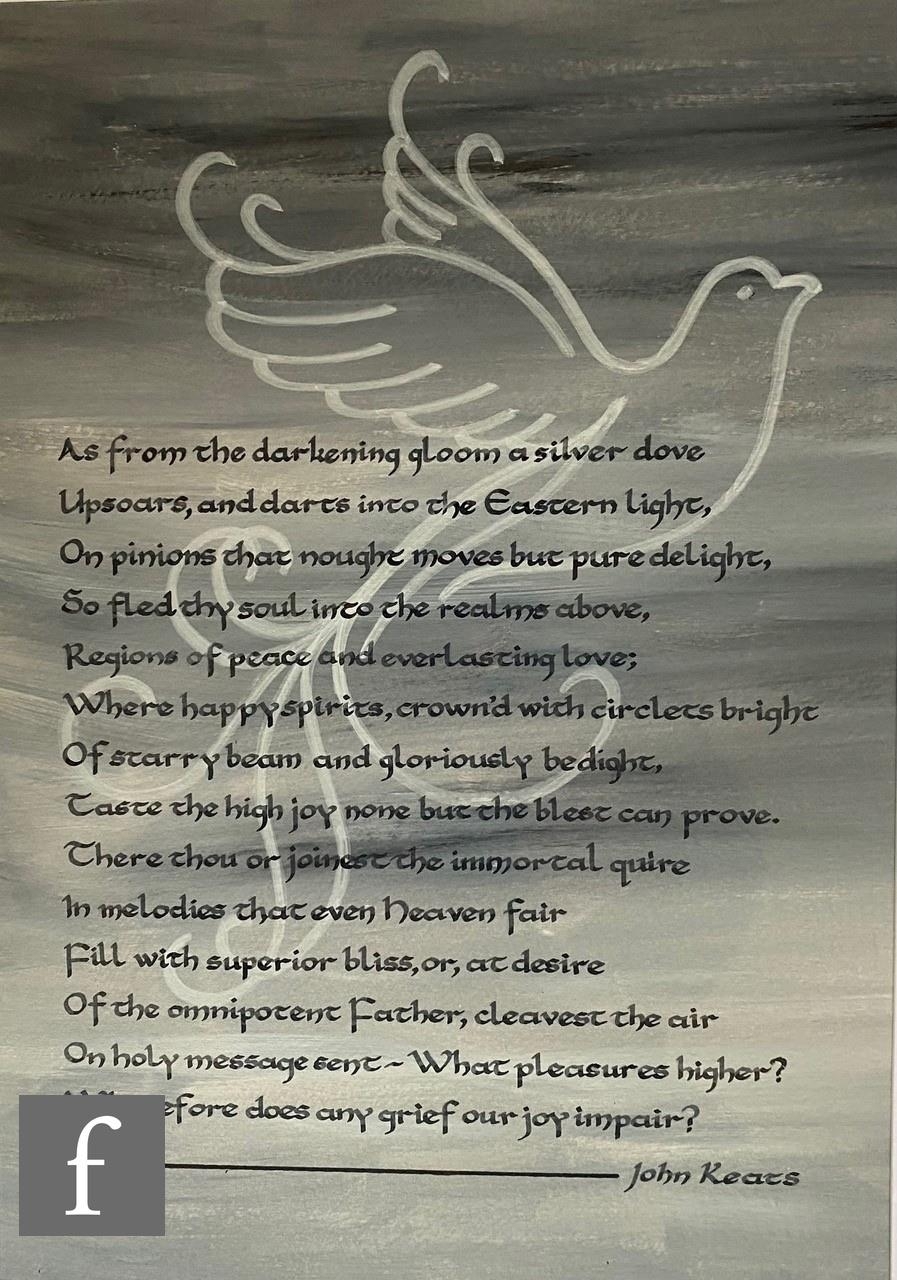 As from the darkening gloom a silver dove
Upsoars, and darts into the Eastern light,
On pinions that nought moves but pure delight,
So fled thy soul into the realms above,
Regions of peace and everlasting love;
Where happy spirits, crown'd with circlets bright
Of starry beam and gloriously bedight,
Taste the high joy none but the blest can prove.
There thou or joinest the immortal quire
In melodies that even Heaven fair
Fill with superior bliss, or, at desire
Of the omnipotent Father, cleavest the air
On holy message sent ~ What pleasures higher?
does any grief our joy impair?
John Keats
f